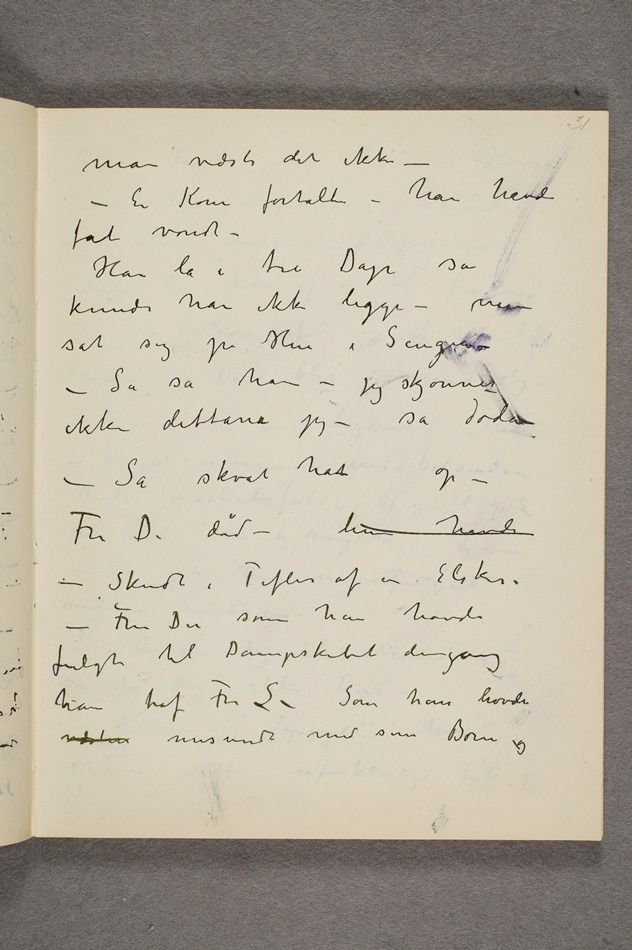 31
man vidste det ikke —
— En Kone fortalte – han havde
fåt vondt –
Han lå i tre Dage så
kunde han ikke ligge – men
sat sig på Huk i Sengen
— Så sa han – jeg skjønner
ikke dettana jeg – så døde
— Så skvat han op –
Fru D. død – hun havde
— Skudt i Tiflis af en Elsker.
— Fru Du som han havde
fulgte til Dampskibet dengang
han traf Fru L – Som han havde
næsten misundt med sine Børn og